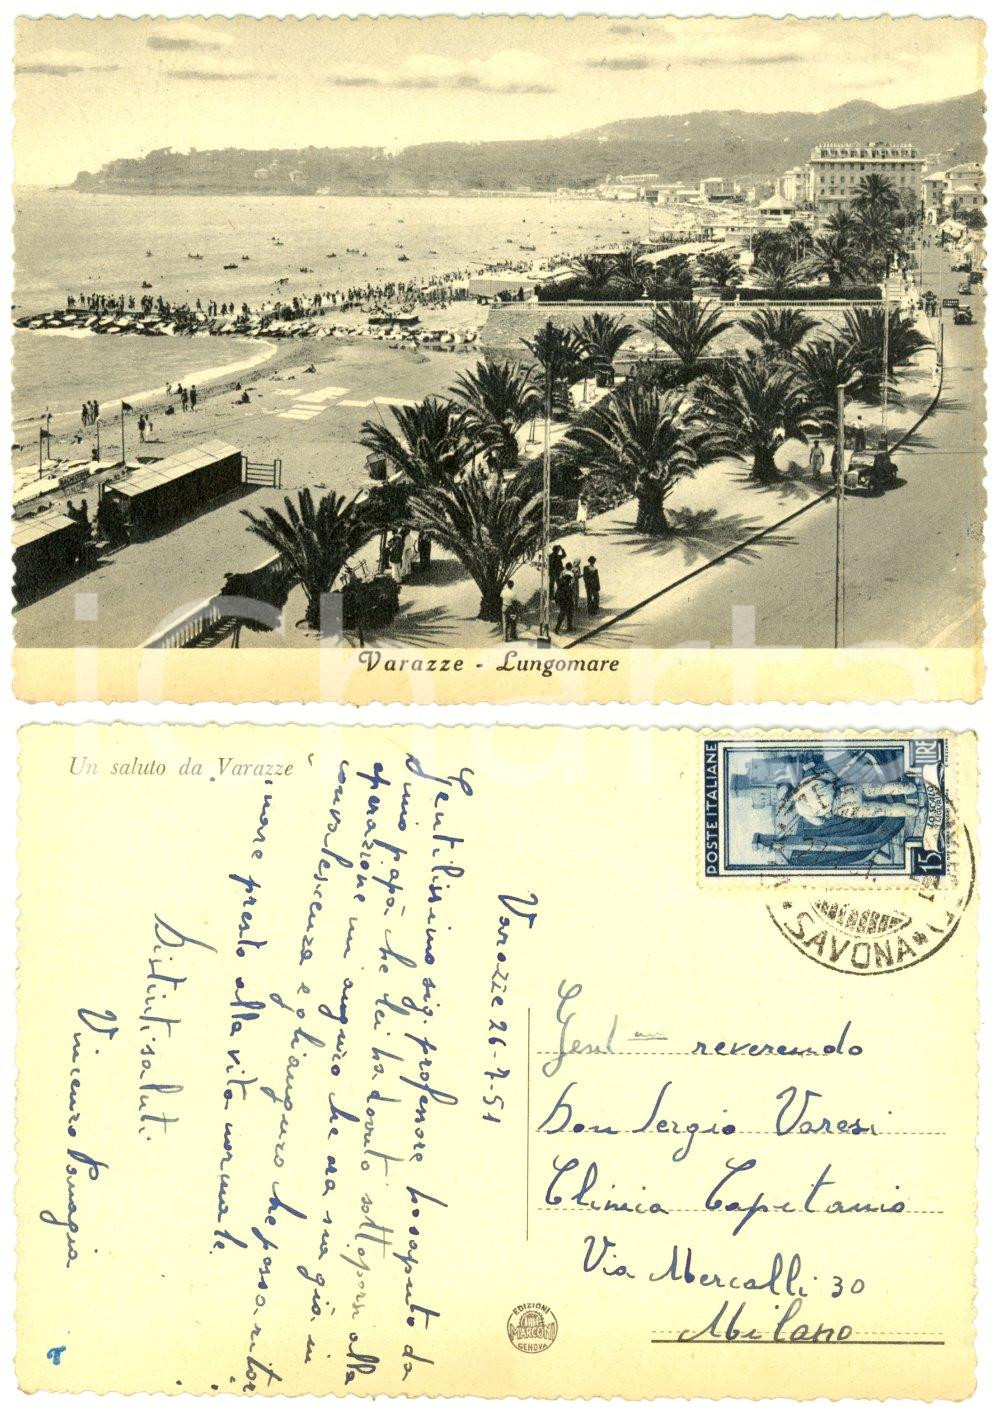 Varazze - Lungomare
iCharta
Un saluto da Varazze
POSTE ITALIANE
LIRE
15
SAVONA
Varazze 26-7-51
Gentilissimo sig. professore ho saputo da
mio papà che lei ha dovuto sottoporsi alla
operazione mi auguro che ora sia già in
convalescenza e gli auguro che possa ritor
nare presto alla vita normale.
Distinti saluti
Vincenzo
Gent mo reverendo
Don Sergio Varesi
Clinica Capitanio
Via Mercalli 30
Milano
EDIZIONI
MARCONI
GENOVA